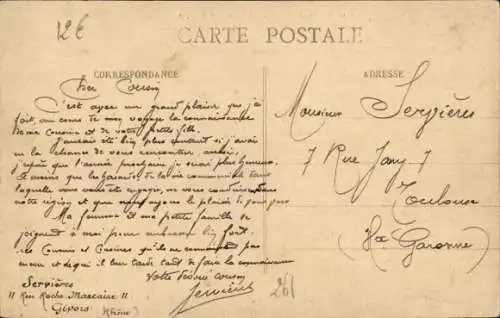 12€
CARTE POSTALE
CORRESPONDANCE
ADRESSE
Cher Cousin
C'est avec un grand plaisir que j'ai
fait, au cours de mon voyage la connaissance
de ma cousine et de votre petite fille.
J'aurais été bien plus content si j'avais
eu la chance de vous rencontrer, aussi,
j'espère que l'année prochaine je serai plus heureux.
Et moins que les hasards de la vie
laquelle vous êtes engagé, ne vous conduisent dans
notre région et que nous ayons le plaisir de
Ma femme et ma petite famille se
joignent à moi pour bien fort.
Cousins et Cousines qu'ils ne connaissent pas
encore et de qui il leur tarde tant de faire la connaissance
Votre dévoué cousin
Servières
Servières
11 Rue Roche Marcaire 11
Givors (Rhône)
261
Monsieur Servières
7 Rue Jany 7
Toulouse
(Hte Garonne)